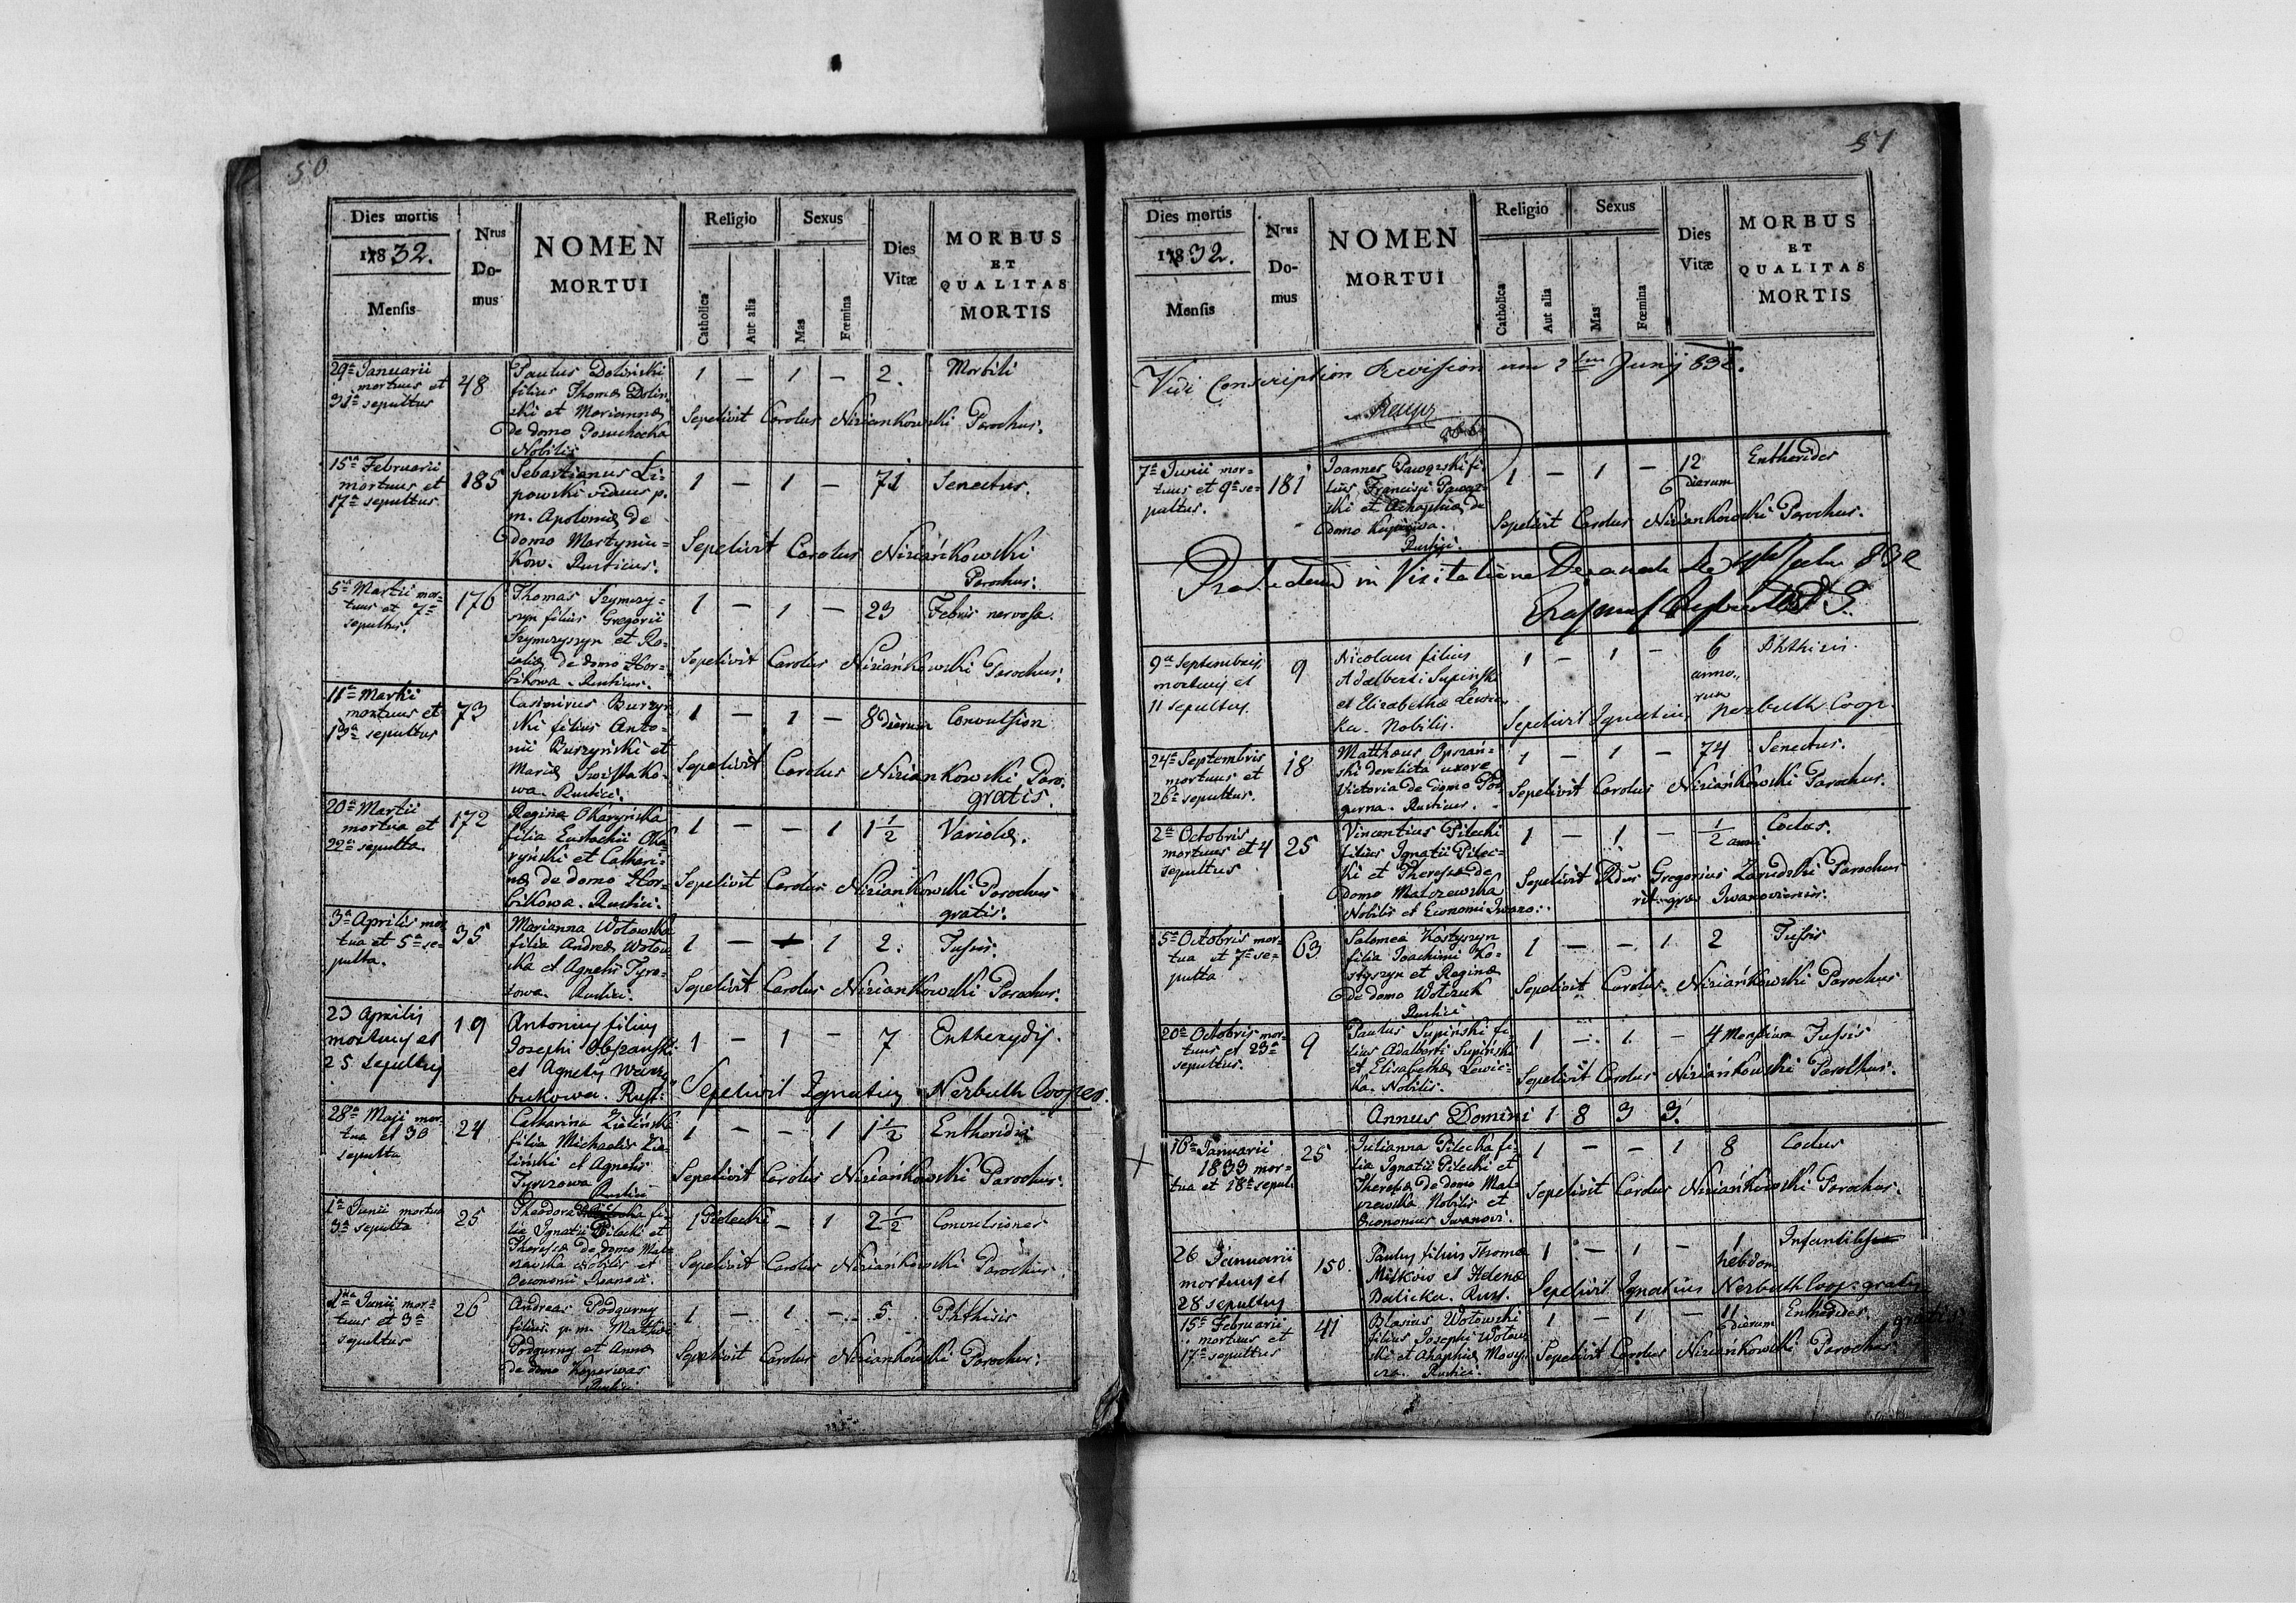 50
Dies mortis
1832.
Mensis
Nrus
Do-
mus
NOMEN
MORTUI
Religio
Catholica
Aut alia
Sexus
Mas
Fœmina
Dies
Vitæ
MORBUS
ET
QUALITAS
MORTIS
29a Januarii
mortuus et
31a sepultus
48
Paulus Doliński
filius Thomæ Doliń
ski et Mariannæ
de domo
Nobilis
1 — 1 — 2. Morbili
Sepelivit Carolus Niziankowski Parochus.
15a Februarii
mortuus et
17a sepultus
185
Sebastianus Li-
powski viduus p.
m. Apoloniæ de
domo Martyniu-
kow. Rusticus.
1 — 1 — 71 Senectus.
Sepelivit Carolus Niziańkowski
Parochus.
5a Martii mor-
tuus et 7a
sepultus.
176
Thomas Szymczy-
szyn filius Gregorii
Szymczyszyn et Ro-
saliæ de domo Hor-
bikowa. Rusticus.
1 — 1 — 23 Febris nervosa.
Sepelivit Carolus Niziańkowski Parochus.
11a Martii
mortuus et
13a sepultus
73
Casimirus Burzyń
ski filius Anto-
nii Burzyński et
Mariæ Swistako-
wa. Rustici.
1 — 1 — 8 dierum Convulsion
Sepelivit Carolus Niziankowski Paro.
gratis.
20a Martii
mortua et
22a sepulta.
172
Regina Okaryńska
filia Eustachii Oka
ryński et Cathari-
næ de domo Hor-
bikowa. Rustici.
1 — — 1 1 1/2 Variolæ.
Sepelivit Carolus Niziankowski Parochus
gratis.
3a Aprilis mor
tua et 5a se-
pulta.
35
Marianna Wołowska
filia Andreæ Wołow
ska et Agnetis Tyro-
towa. Rustici.
1 — 1 1 2. Tussis.
Sepelivit Carolus Niziańkowski Parochus.
23 Aprilis
mortuus et
25 sepultus
19
Antonius filius
Josephi Obszanski
et Agnetis Wawrzy
bukowa. Rust.
1 — 1 — 7 Entherydis.
Sepelivit Ignatius Nerbuth Cooper.
28a Maji mor-
tua et 30
sepulta
24
Catharina Zielińska
filia Michaelis Zie
liński et Agnetis
Tyrczowa
Rustici
1 — — 1 1 1/2 Entheridis
Sepelivit Carolus Niziańkowski Parochus.
1a Junii mortua
3a sepulta
25
Theodora fi-
lia Ignatii Pilecki et
Theresæ de domo Mal
czewska Nobilis et
Oeconomi Iwanovi.
1 Pielecki — 1 2 1/2 Convulsiones
Sepelivit Carolus Niziańkowski Parochus
1ma Junii mor-
tuus et 3a
sepultus
26
Andreas Podgurny
filius p. m. Mathiæ
Podgurny et Annæ
de domo Koperwas
Rustici
1 — 1 — 5. Phthisis
Sepelivit Carolus Niziankowski Parochus.
51
Dies mortis
1832.
Mensis
Nrus
Do-
mus
NOMEN
MORTUI
Religio
Catholica
Aut alia
Sexus
Mas
Fœmina
Dies
Vitæ
MORBUS
ET
QUALITAS
MORTIS
Vidi Conscription Revision am 2ten Junij 832.
7a Junii mor-
tuus et 9a se-
pultus.
181
Joannes Pawęzski fi-
lius Francisci Pawęz-
ski et Achaphiæ de
domo
Rustici.
1 — 1 — 12 dierum Entherides
Sepelivit Carolus Niziankowski Parochus.
in Visitatione Decanali 832
9a Septembris
mortuus et
11 sepultus.
9
Nicolaus filius
Adalberti Supiński
et Elizabethæ Lewic
ka. Nobilis.
1 — 1 — 6 anno-
rum Phthisis.
Sepelivit Ignatius Nerbuth Coop.
24a Septembris
mortuus et
26a sepultus.
18
Matthæus Opszań-
ski derelicta uxore
Victoria de domo Pod
gurna. Rusticus.
1 — 1 — 74 Senectus.
Sepelivit Carolus Niziańkowski Parochus.
2a Octobris
mortuus et 4
sepultus
25
Vincentius Pilecki
filius Ignatii Pilec-
ki et Theresæ de
domo Malczewska
Nobilis et Economi Iwano.
1 — 1 — 1/2 anni Coctus.
Sepelivit Rdus Gregorius Zarudzki Parochus
rit. græ. Iwanoviensis.
5a Octobris mor-
tua et 7a se-
pulta
63
Salomea Kostyszyn
filia Joachimi Ko-
styszyn et Reginæ
de domo Wołczuk
Rustici
1 — — 1 2 Tussis
Sepelivit Carolus Niziańkowski Parochus
20a Octobris mor-
tuus et 23a
sepultus.
9
Paulus Supiński fi-
lius Adalberti Supiński
et Elisabethæ Lewic-
ka. Nobilis.
1 — 1 — 4 Mensium Tussis
Sepelivit Carolus Niziańkowski Parochus.
Annus Domini 1 8 3 3.
16a Januarii
1833 mor-
tua et 18a sepul.
25
Julianna Pilecka fi-
lia Ignatii Pilecki et
Theresæ de domo Mal-
czewska Nobilis et
Economius Iwanovi.
1 — — 1 8 Coctus
Sepelivit Carolus Niziańkowski Parochus.
26 Januarii
mortuus et
28 sepultus
150.
Paulus filius Thomæ
Milkovs et Helenæ
Balicka. Rust.
1 — 1 — 1 hebdom Infantilis
Sepelivit Ignatius Nerbuth Coop. gratis
15a Februarii
mortuus et
17a sepultus
41
Blasius Wołowski
filius Josephi Wołow
ski et Ahaphiæ Mosy-
ra. Rustici.
1 — 1 — 11 dierum Entherides. gratis.
Sepelivit Carolus Niziankowski Parochus